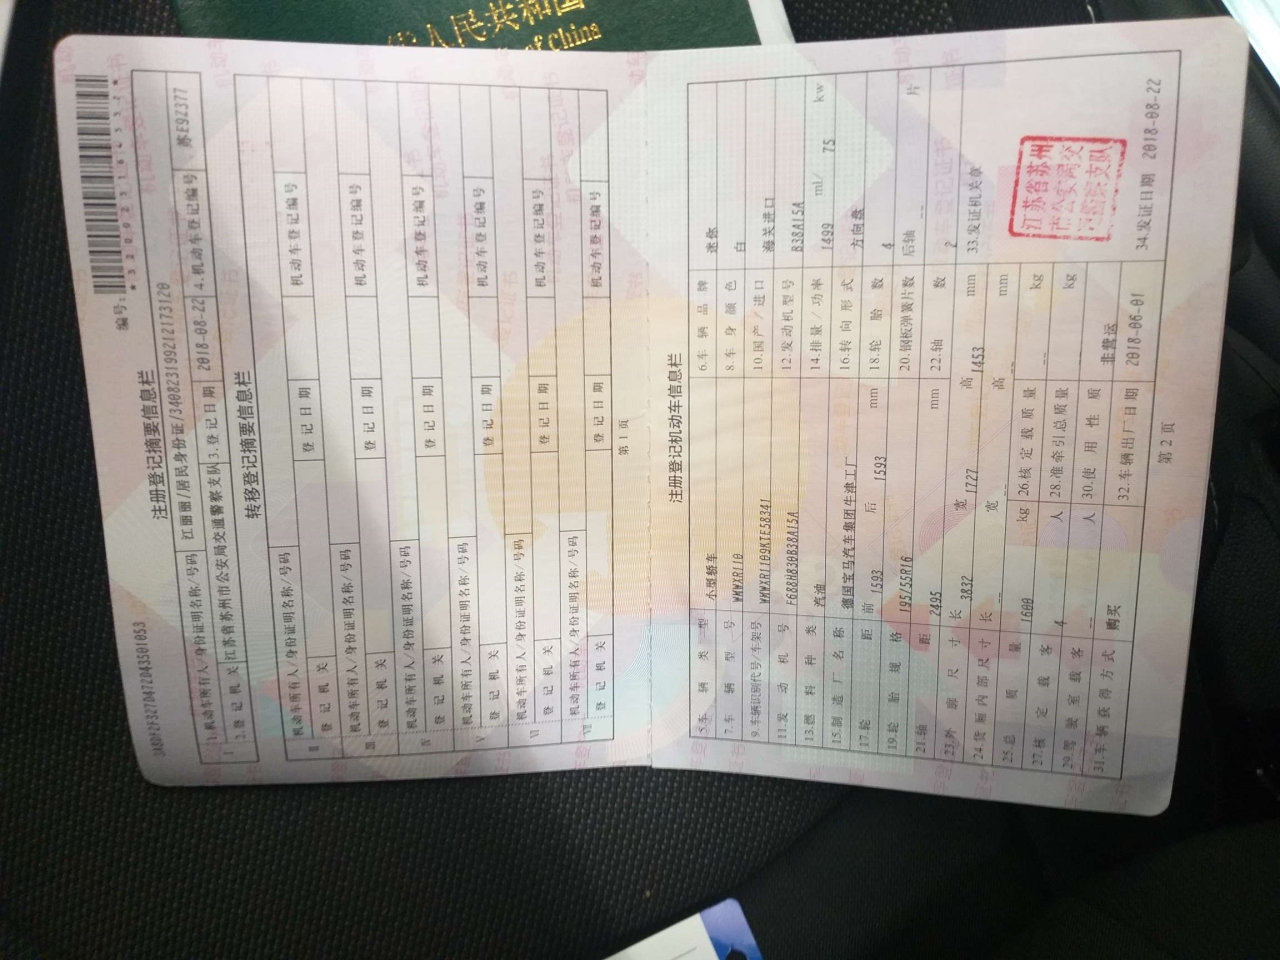 华人民共和国
of China
3A8DF2F3270472043501053
编号:
*320023164352*
注册登记摘要信息栏
Ⅰ 1.机动车所有人/身份证明名称/号码 江丽丽/居民身份证/340823199212173120
2.登记机关 江苏省苏州市公安局交通警察支队 3.登记日期 2018-08-22 4.机动车登记编号 苏E92377
转移登记摘要信息栏
Ⅱ 机动车所有人/身份证明名称/号码
登记机关 登记日期 机动车登记编号
Ⅲ 机动车所有人/身份证明名称/号码
登记机关 登记日期 机动车登记编号
Ⅳ 机动车所有人/身份证明名称/号码
登记机关 登记日期 机动车登记编号
Ⅴ 机动车所有人/身份证明名称/号码
登记机关 登记日期 机动车登记编号
Ⅵ 机动车所有人/身份证明名称/号码
登记机关 登记日期 机动车登记编号
Ⅶ 机动车所有人/身份证明名称/号码
登记机关 登记日期 机动车登记编号
第1页
注册登记机动车信息栏
5.车辆类型 小型轿车 6.车辆品牌 迷你
7.车辆型号 WMWXR110 8.车身颜色 白
9.车辆识别代号/车架号 WMWXR1109KTE58341 10.国产/进口 海关进口
11.发动机号 F688H830B38A15A 12.发动机型号 B38A15A
13.燃料种类 汽油 14.排量/功率 1499 ml/ 75 kw
15.制造厂名称 德国宝马汽车集团牛津工厂 16.转向形式 方向盘
17.轮距 前 1593 后 1593 mm 18.轮胎数 4
19.轮胎规格 195/55R16 20.钢板弹簧片数 后轴 -- 片
21.轴距 2495 mm 22.轴数 2
23.外廓尺寸 长 3832 宽 1727 高 1453 mm 33.发证机关章
24.货厢内部尺寸 长 -- 宽 -- 高 -- mm
25.总质量 1600 kg 26.核定载质量 -- kg
27.核定载客 4 人 28.准牵引总质量 -- kg
29.驾驶室载客 -- 人 30.使用性质 非营运
31.车辆获得方式 购买 32.车辆出厂日期 2018-06-01 34.发证日期 2018-08-22
江苏省苏州
市公安局交
通警察支队
第2页